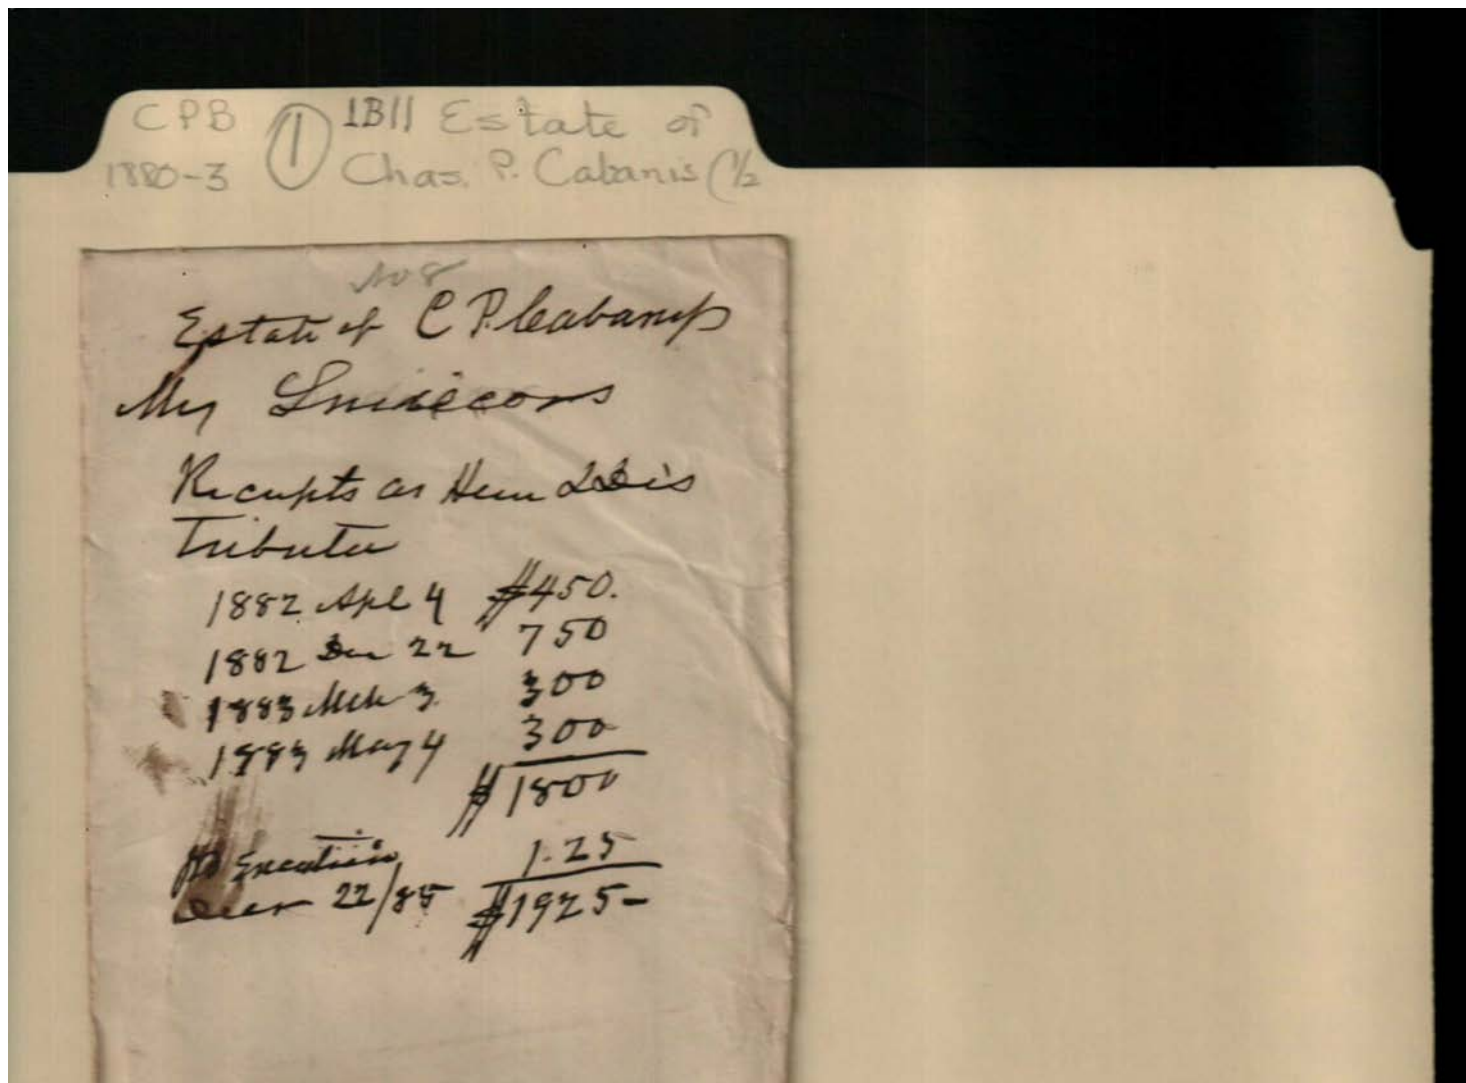 CPB ① 1B11 Estate of
1880-3 Chas. P. Cabanis (1/2
No 8
Estate of C P. Cabaniss
My
Receipts as Heir & Dis
Tributee
1882 Apl 4 $450.
1882 Dec 22 750
1883 Mch 3 300
1883 May 4 300
$1800
Execution 1.25
22/85 $1925-